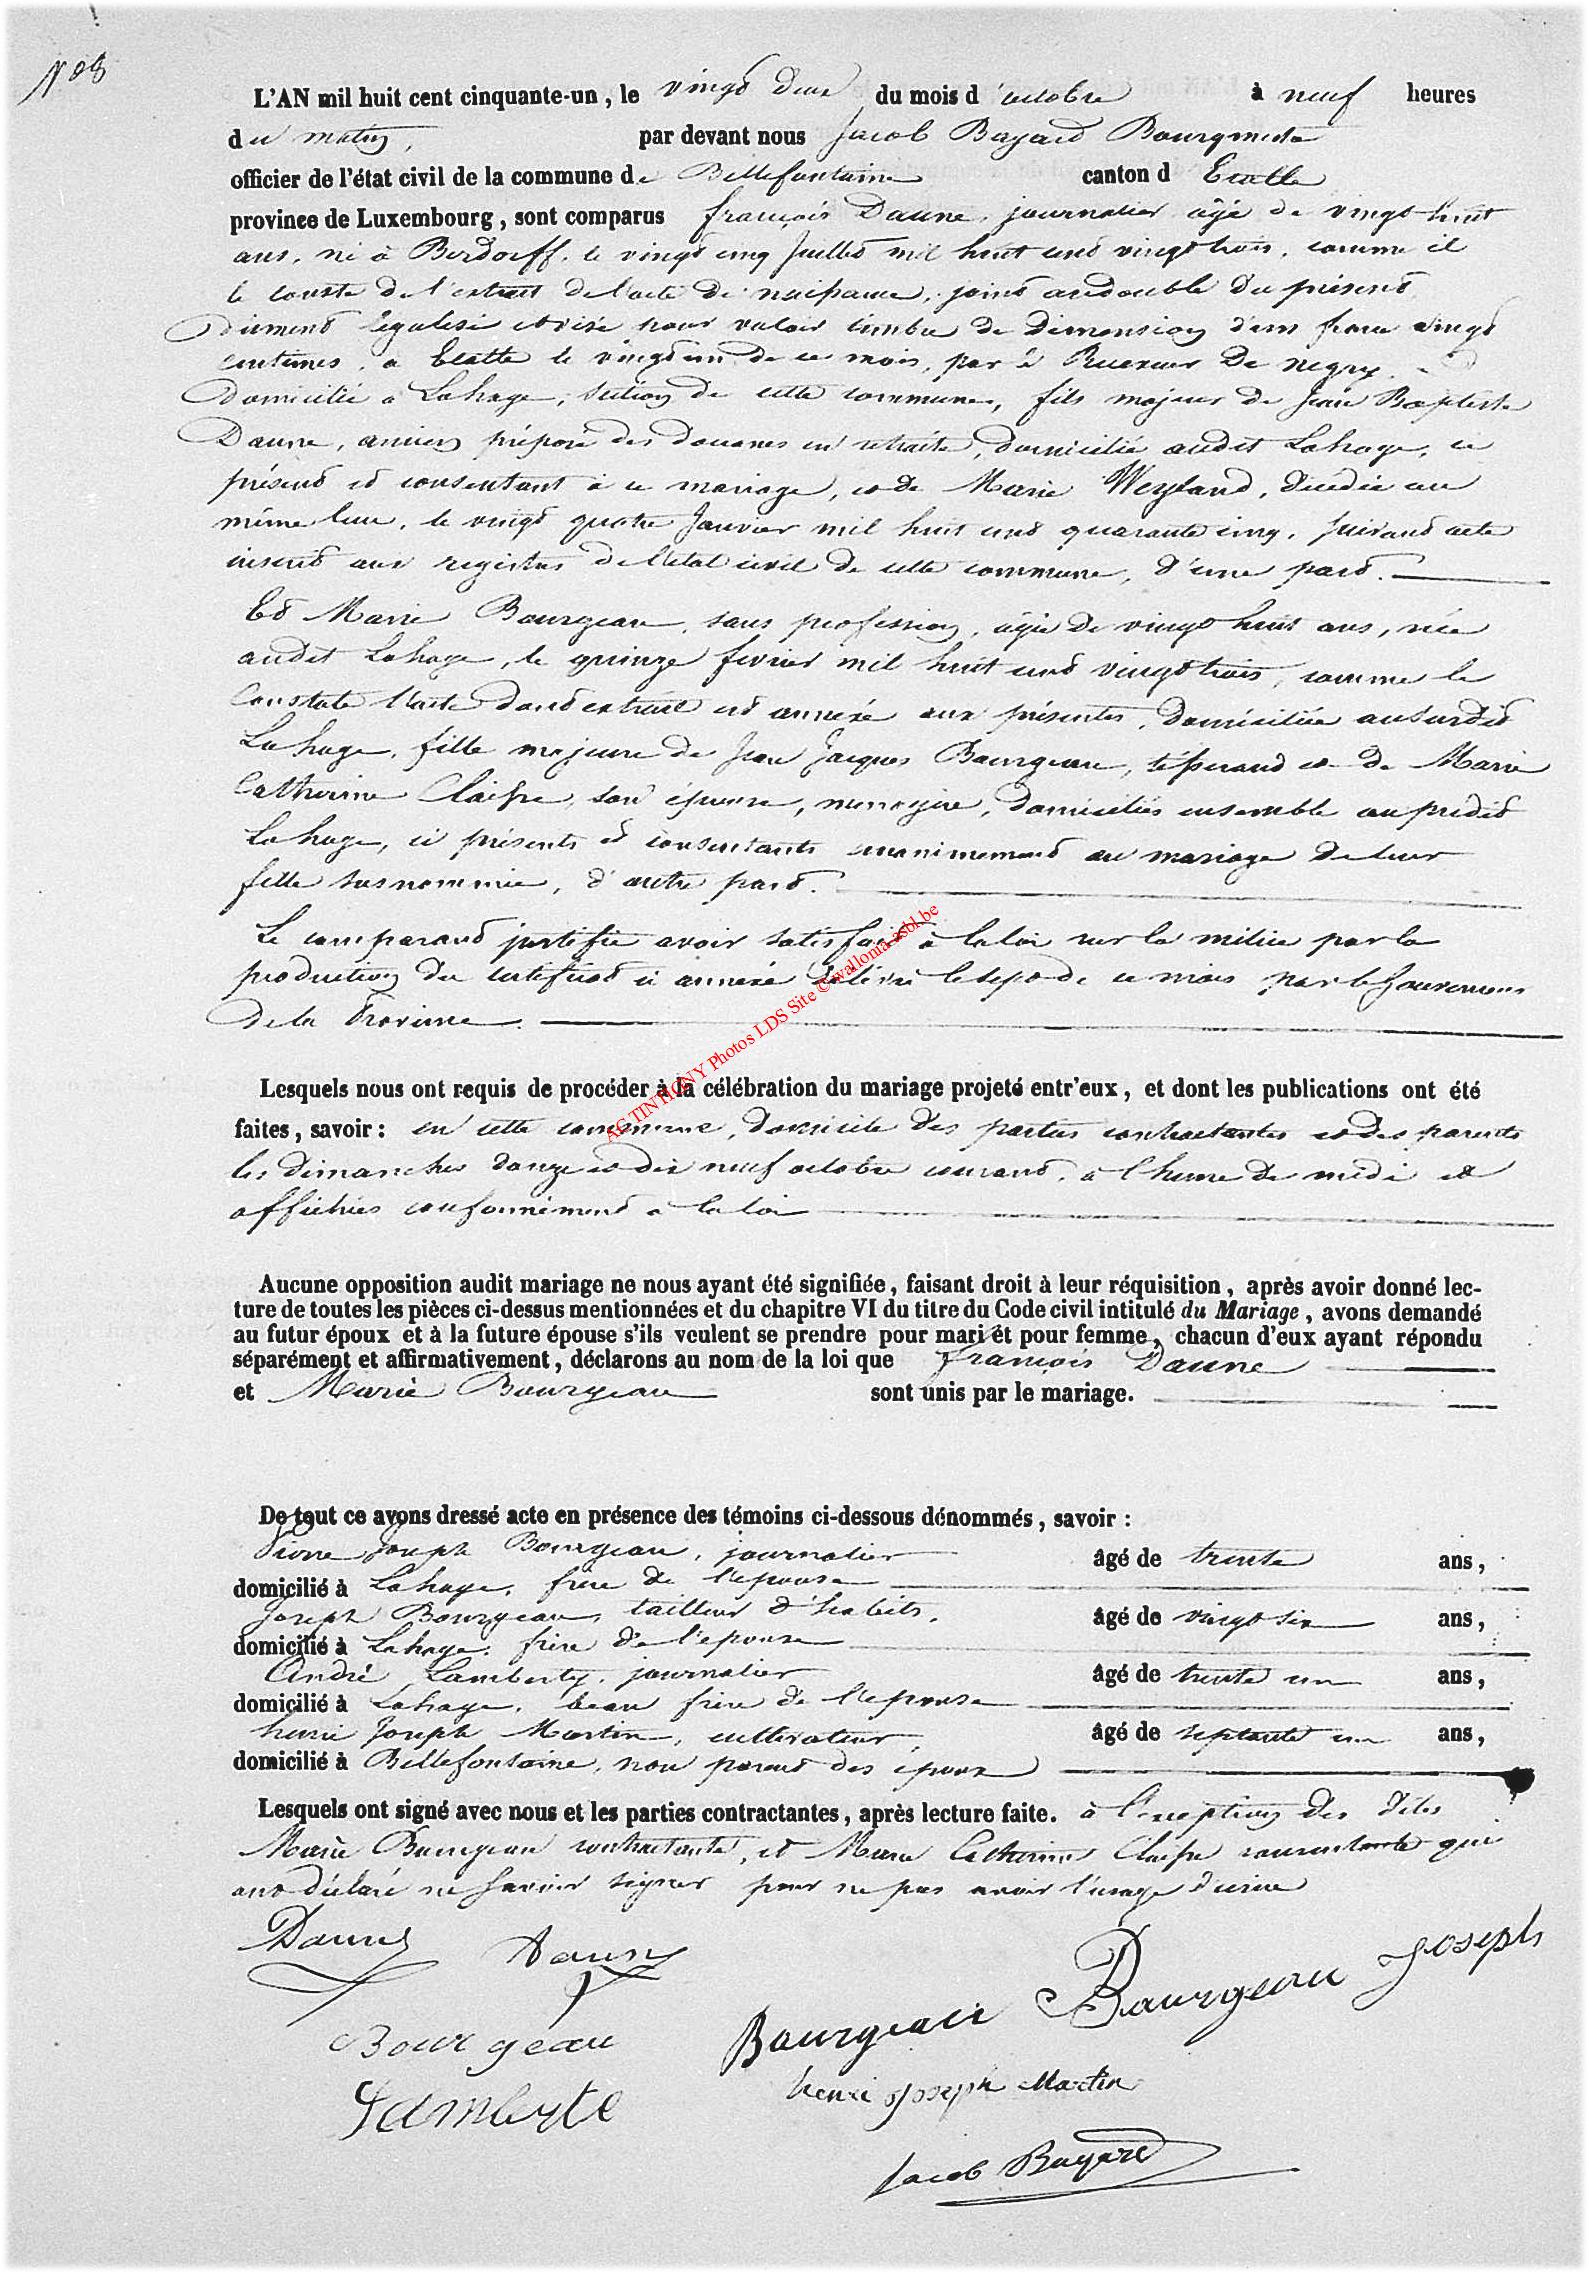 N° 8
L'AN mil huit cent cinquante-un, le vingt deux du mois d'octobre à neuf heures
du matin, par devant nous Jacob Bayard Bourgmestre
officier de l'état civil de la commune de Bellefontaine canton d'Etalle
province de Luxembourg, sont comparus françois Daune, journalier âgé de vingt-huit
ans, né à Berdorff, le vingt cinq Juillet mil huit cent vingt trois, comme il
le conste de l'extrait de l'acte de naissance, joint au double du présent
dûment légalisé et visé pour valoir timbre de dimension d'un franc vingt
centimes, à Etalle le vingt un de ce mois, par le Receveur De negry
Domicilié à Lahage, section de cette commune, fils majeur de Jean Baptiste
Daune, ancien préposé des douanes en retraite, domicilié audit Lahage, ici
présent et consentant à ce mariage, et de Marie Weyland, décédée au
même lieu, le vingt quatre Janvier mil huit cent quarante cinq, suivant acte
inscrit aux registres de l'état civil de cette commune, d'une part.
Et Marie Bourgeau, sans profession, âgée de vingt huit ans, née
audit Lahage, le quinze fevrier mil huit cent vingt trois, comme le
Constate l'acte dont extrait est annexé aux présentes, domiciliée au susdit
Lahage, fille majeure de Jean Jacques Bourgeau, tisserand et de Marie
Catherine Claisse, son épouse, menagère, domiciliés ensemble au prédit
Lahage, ici présents et consentants unanimement au mariage de leur
fille susnommée, d'autre part.
Le comparant justifie avoir satisfait à la loi sur la milice par la
production du certificat ci annexé délivré le sept de ce mois par le Gouverneur
de la Province.
AC TINTIGNY Photos LDS Site © wallonia-asbl.be
Lesquels nous ont requis de procéder à la célébration du mariage projeté entr'eux, et dont les publications ont été
faites, savoir: en cette commune, domicile des parties contractantes et des parents
les dimanches douze et dix neuf octobre courant, à l'heure de midi et
affichées conformément à la loi
Aucune opposition audit mariage ne nous ayant été signifiée, faisant droit à leur réquisition, après avoir donné lec-
ture de toutes les pièces ci-dessus mentionnées et du chapitre VI du titre du Code civil intitulé du Mariage, avons demandé
au futur époux et à la future épouse s'ils veulent se prendre pour mari et pour femme, chacun d'eux ayant répondu
séparément et affirmativement, déclarons au nom de la loi que françois Daune
et Marie Bourgeau sont unis par le mariage.
De tout ce avons dressé acte en présence des témoins ci-dessous dénommés, savoir:
Pierre Joseph Bourgeau, journalier âgé de trente ans,
domicilié à Lahage, frère de l'epouse
Joseph Bourgeau, tailleur d'habits, âgé de vingt six ans,
domicilié à Lahage, frère de l'epouse
André Lamberty, journalier âgé de trente un ans,
domicilié à Lahage, beau frère de l'epouse
henri Joseph Martin, cultivateur, âgé de septante un ans,
domicilié à Bellefontaine, non parent des époux
Lesquels ont signé avec nous et les parties contractantes, après lecture faite. à l'exception des dites
Marie Bourgeau contractante, et Marie Catherine Claisse consentante qui
ont déclaré ne savoir signer pour ne pas avoir l'usage d'ecrire
Daune Daune
Bourgeau Bourgeau Bourgeau Joseph
Lamberte henri Joseph Martin
Jacob Bayard